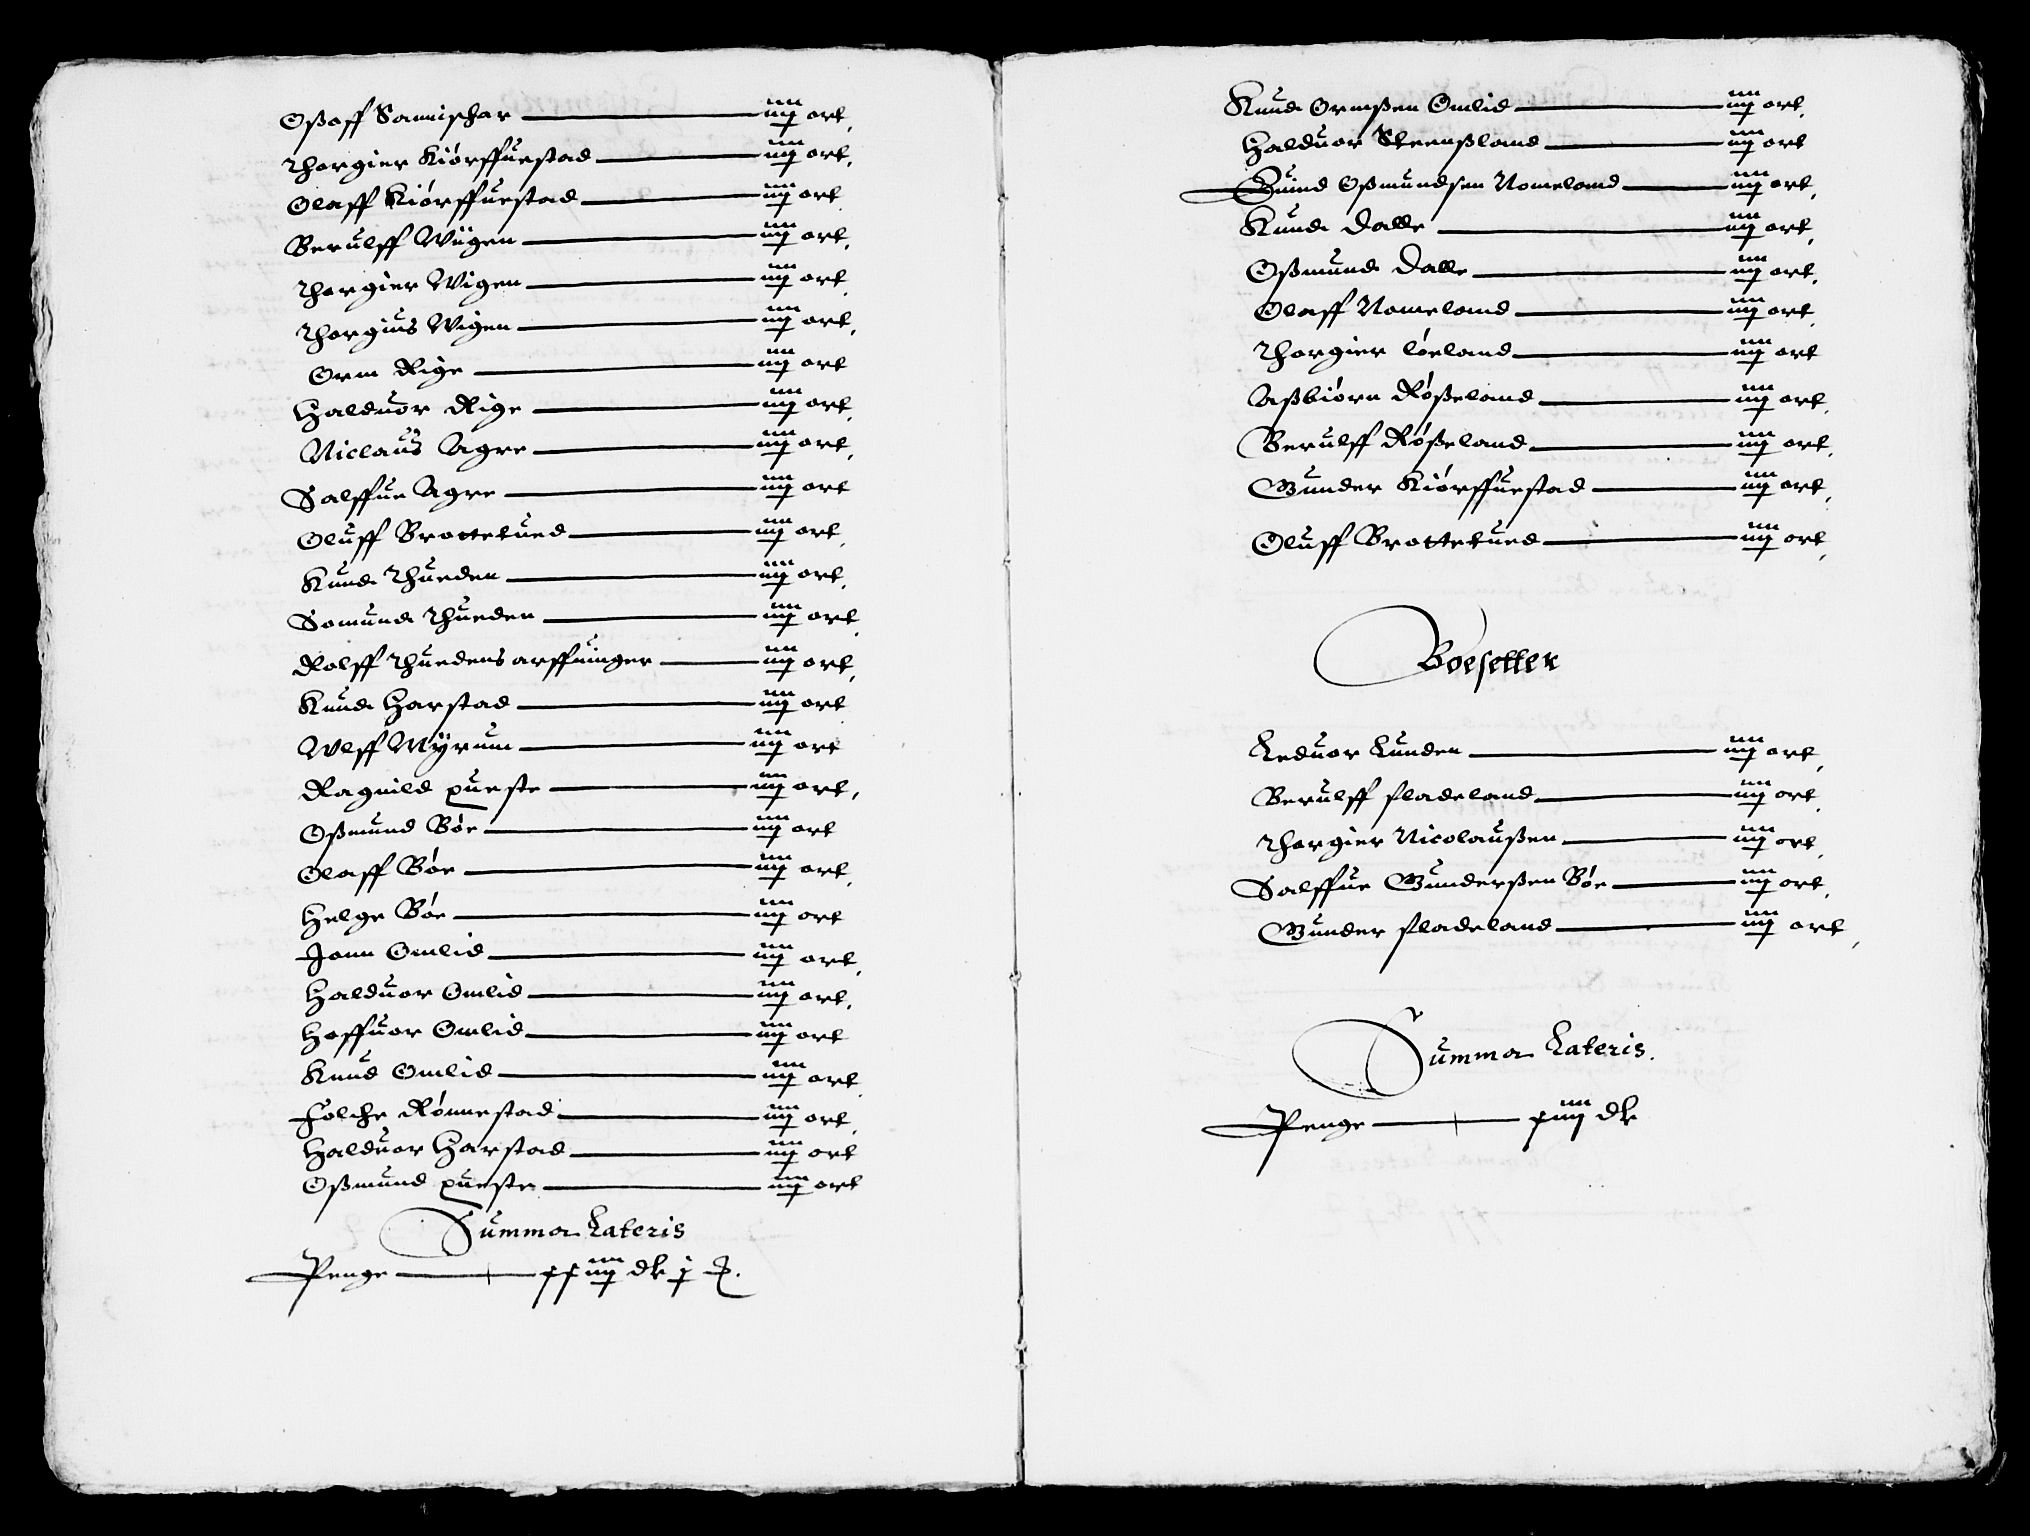 Oßoff Sannischar iiij ort
Thorgier Kiörffuestad iiij ort
Olaff Kiörffuestad iiij ort
Berulff Wiigen iiij ort
Thorgier Wigen iiij ort
Thorgius Wigen iiij ort
Orm Rige iiij ort
Halduor Rige iiij ort
Niclaus Agre iiij ort
Salffue Agre iiij ort
Oluff Brottetued iiij ort
Knud Thueden iiij ort
Somund Thueden iiij ort
Rolff Thuedens arffuinger iiij ort
Knud Harstad iiij ort
Wlff Mÿrum iiij ort
Ragnild Queste iiij ort
Oßmund Böe iiij ort
Olaff Böe iiij ort
Helge Böe iiij ort
Jonn Omlid iiij ort
Halduor Omlid iiij ort
Hoffuor Omlid iiij ort
Knud Omlid iiij ort
Folche Rönnestad iiij ort
Halduor Harstad iiij ort
Oßmund Queste iiij ort
Summa Lateris
Penge xxiiij dlr j
Knud Ormßen Omlid iiij ort
Halduor Steenßland iiij ort
Suind Oßmundsen Nomeland iiij ort
Knud Dalle iiij ort
Oßmund Dalle iiij ort
Olaff Nomeland iiij ort
Thorgier löeland iiij ort
Aßbiörn Rößeland iiij ort
Berulff Rößeland iiij ort
Gunder Kiörffuestad iiij ort
Oluff Brottetued iiij ort
Boesetter
Leduor Lunden iiij ort
Berulff fladeland iiij ort
Thorgier Nicolaußen iiij ort
Salffue Gunderßen Böe iiij ort
Gunder fladeland iiij ort
Summa Lateris.
Penge xiiij dlr